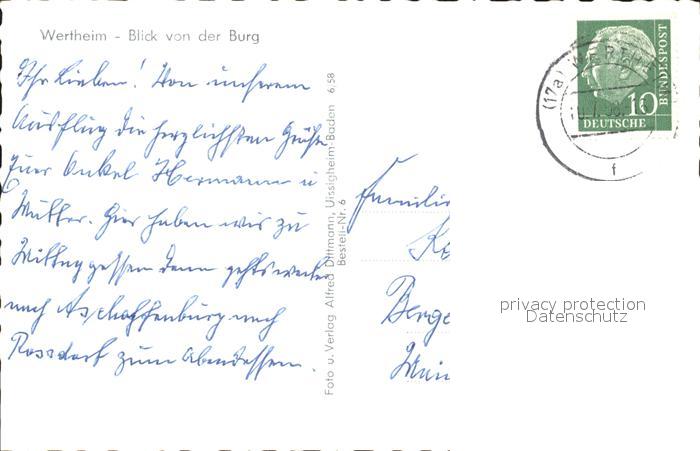 Wertheim - Blick von der Burg
Ihr Lieben! Von unserem
Ausflug die herzlichsten Grüße
Euer Onkel Hermann u
Mutter. Hier haben wir zu
Mittag gegessen dann gehts weiter
nach Aschaffenburg nach
Rossdorf zum Abendessen.
Foto u. Verlag Alfred Dittmann, Uissigheim-Baden 6/58
Bestell-Nr. 6
Familie
Berge
(17a) WERTHE
f
10
DEUTSCHE
BUNDESPOST
privacy protection
Datenschutz